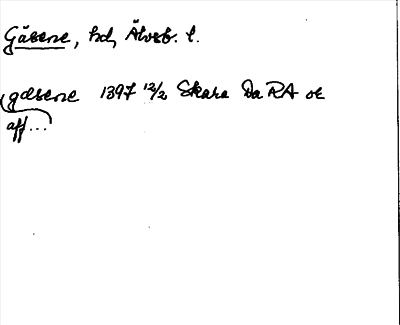 Gäsene, hd, Älvsb. l.
gæsene 1397 12/2 Skara Da RA or
aff...